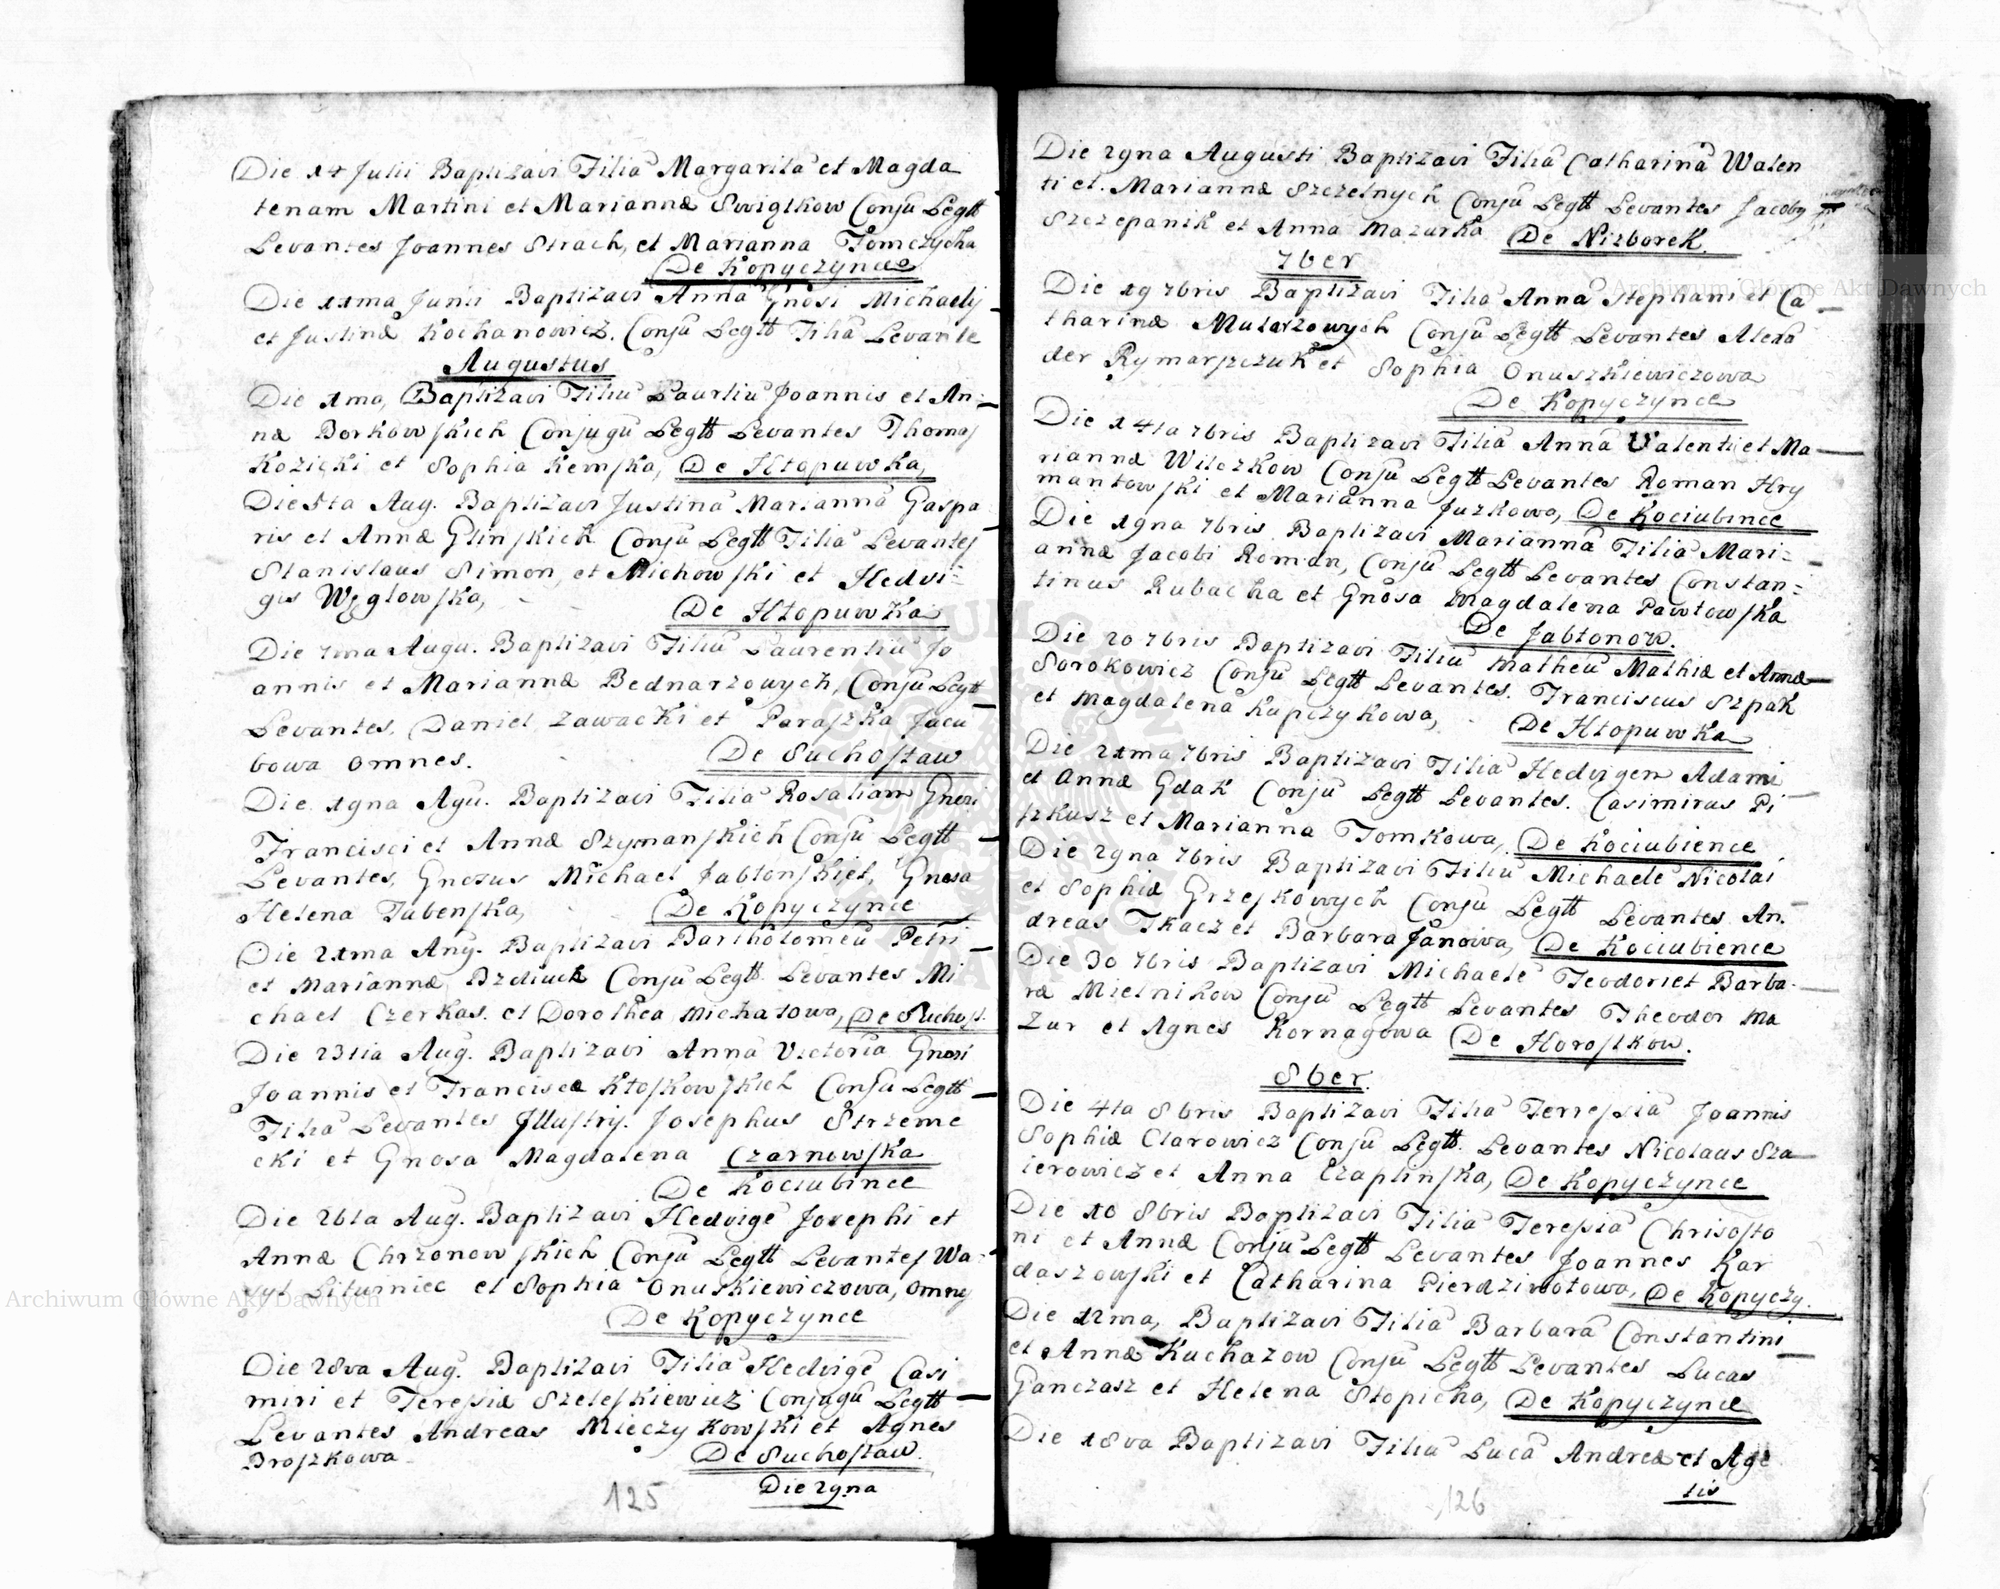 Die 14 Julii Baptizavi Filia Margarita et Magda
lenam Martini et Mariannæ Swiątkow Conju Legtt
Levantes Joannes Strach, et Marianna Tomczycha
De Kopyczynce
Die 11ma Junii Baptizavi Anna Gnosi Michaelis
et Justinæ Kochanowicz. Conju Legtt Filia Levante
Augustus
Die 1ma, Baptizavi Filiu Joannis et An-
næ Borkowskich Conjugu Legtt Levantes Thomas
Kozicki et Sophia Kemska, De Hłopuwka,
Die 5ta Aug. Baptizavi Justina Marianna Gaspa
ris et Annæ Glinskich Conju Legtt Filia Levantes
Stanislaus Simon, et Michowski et Hedvi-
gis Węglowska,
De Hłopuwka
Die 7ma Augu. Baptizavi Filiu Laurentiu Jo
annis et Mariannæ Bednarzowych, Conju Legtt
Levantes, Daniel Zawacki et Paraszka Jacu
bowa omnes.
De Suchostaw
Die 19na Agu. Baptizavi Filia Rosaliam Gnosi
Francisci et Annæ Szymanskich Conju Legtt
Levantes, Gnosus Michael Jabłonskiet, Gnosa
Helena Tubenska,
De Kopyczynce
Die 21ma Aug. Baptizavi Bartholomeu Petri
et Mariannæ Bzdiuch Conju Legtt Levantes Mi
chael Czerkas. et Dorothea Michałowa, De Suchost.
Die 23tia Aug. Baptizavi Anna Victoria Gnosi
Joannis et Franciscæ Kłoskowskich Conju Legtt
Filia Levantes Jllustris. Josephus Strzeme
cki et Gnosa Magdalena Czarnowska
De Kociubince
Die 26ta Aug. Baptizavi Hedvige Josephi et
Annæ Chrzonowskich Conju Legtt Levantes Wa-
syl Litwiniec et Sophia Onuskiewiczowa, omnes
De Kopyczynce
Die 28va Aug. Baptizavi Filia Hedvige Casi
miri et Teresiæ Szeleskiewicz Conjugu Legtt
Levantes Andreas Mieczykowski et Agnes
Broszkowa
De Suchostaw.
Die 29na
125
Die 29na Augusti Baptizavi Filia Catharina Walen
ti et. Mariannæ Szczelnych Conju Legtt Levantes Jacoby
Szczepanik et Anna Mazurka De Nizborek.
7ber
Die 19 7bris Baptizavi Filia Anna Stephani et Ca
tharinæ Mularzowych Conju Legtt Levantes Alexa
der Rymarszczuk et Sophia Onuszkiewiczowa
De Kopyczynce
Die 14ta 7bris Baptizavi Filia Anna Valenti et Ma
riannæ Wilczkow Conju Legtt Levantes Roman Hry
mantowski et Marianna Juzkowa, De Kociubince
Die 19na 7bris Baptizavi Marianna Filia Mari-
annæ Jacobi Roman, Conju Legtt Levantes Constan-
tinus Rubacha et Gnosa Magdalena Pawłowska
De Jabłonow.
Die 20 7bris Baptizavi Filiu Matheu Mathiæ et Annæ
Sorokowicz Conju Legtt Levantes. Franciscus Szpak
et Magdalena Kupczykowa,
De Hłopuwka
Die 21ma 7bris Baptizavi Filia Hedvigem Adami
et Annæ Gdak Conju Legtt Levantes. Casimirus Pi
szkusz et Marianna Tomkowa, De Kociubience
Die 29na 7bris Baptizavi Filiu Michaele Nicolai
et Sophiæ Grzeskowych Conju Legtt Levantes An.
dreas Tkacz et Barbara Janowa, De Kociubience
Die 30 7bris Baptizavi Michaele Teodori et Barba.
ræ Mielnikow Conju Legtt Levantes Theodor Ma
zur et Agnes Kornagowa De Horostkow.
8ber.
Die 4ta 8bris Baptizavi Filia Terresia Joannis
Sophiæ Clarowicz Conju Legtt Levantes Nicolaus Sza
ierowicz et Anna Czaplinska, De Kopyczynce
Die 10 8bris Baptizavi Filia Teresia Chrisosto
mi et Annæ Conju Legtt Levantes Joannes Kar
daszowski et Catharina Pierdzimołowa, De Kopyczy.
Die 12ma, Baptizavi Filia Barbara Constantini
et Annæ Kuchazow Conju Legtt Levantes Lucas
Ganczasz et Helena Stopicha, De Kopyczynce
Die 18va Baptizavi Filia Luca Andreæ et Age
tis
126
Archiwum Główne Akt Dawnych
Archiwum Główne Akt Dawnych